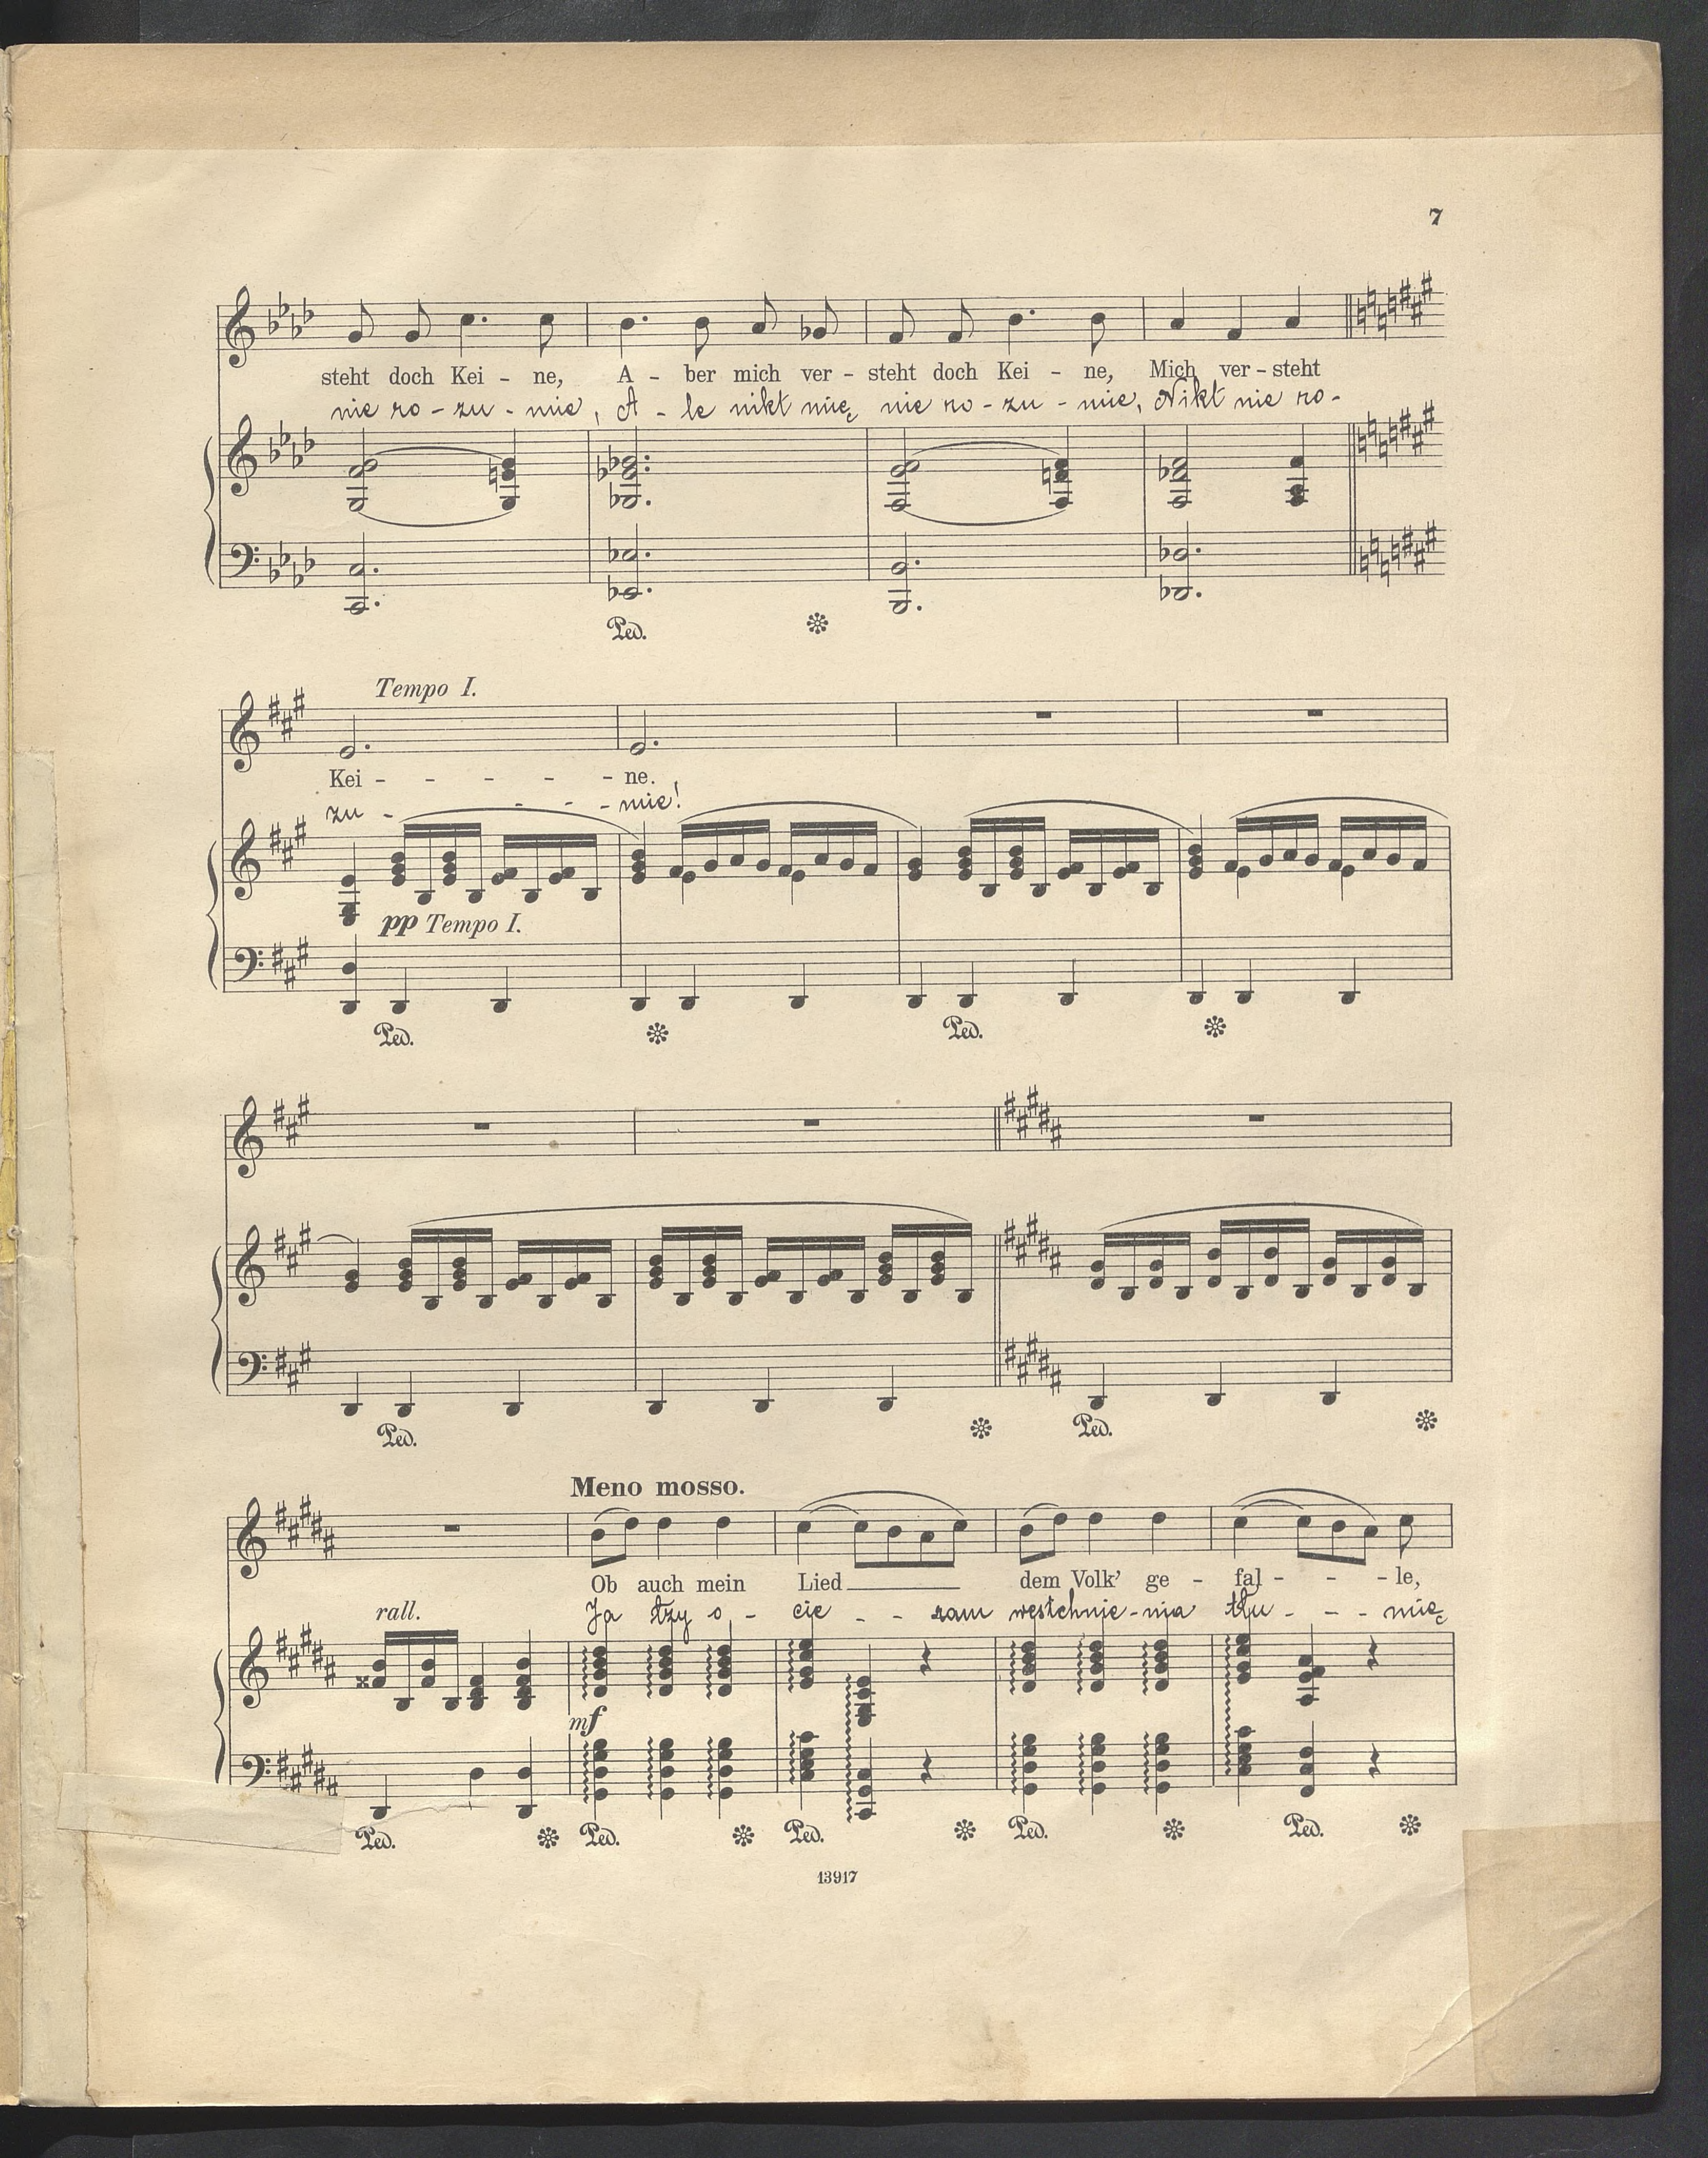 7
steht doch Kei - ne, A - ber mich ver - steht doch Kei - ne, Mich ver - steht
nie ro - zu - mie, A - le nikt mię nie ro - zu - mie, Nikt nie ro -
Tempo I.
Kei - - - - - ne.
zu - - - - mie!
pp Tempo I.
Ped.
Ped.
Ped.
Ped.
Ped.
Meno mosso.
Ob auch mein Lied dem Volk' ge - fal - - - le,
rall. Ja łzy o - cie - - ram westchnie - nia tłu - - - mię
mf
Ped. Ped. Ped. Ped. Ped.
13917